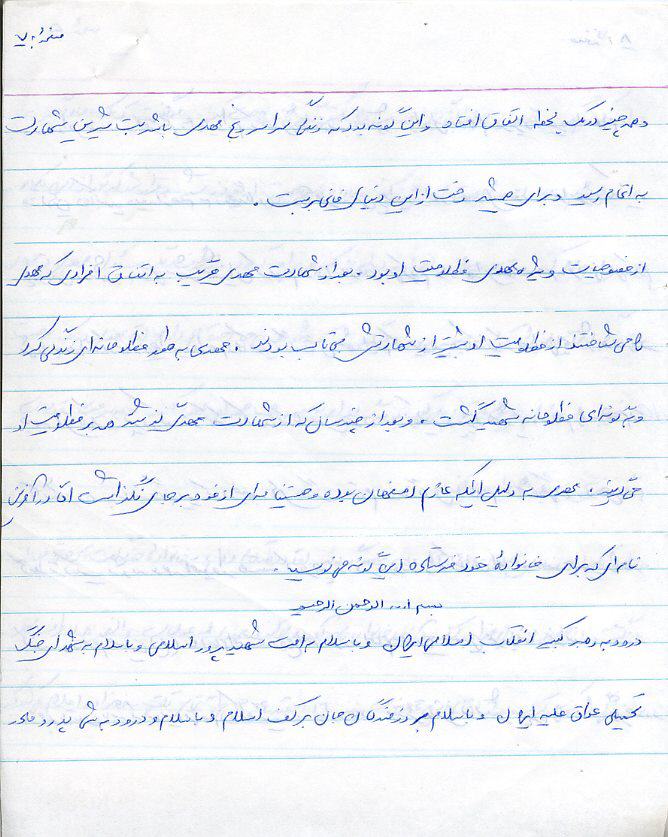 صفحه: ۷
و همه چیز در یک لحظه اتفاق افتاد و این گونه بود که زندگی سراسر رنج مهدی با شربت شیرین شهادت
به اتمام رسید و برای همیشه رخت از این دنیای فانی بربست .
از خصوصیات ویژه مهدی مظلومیت او بود . بعد از شهادت مهدی قریب به اتفاق افرادی که مهدی
را می شناختند از مظلومیت او بیشتر از شهادتش بی تاب بودند . مهدی به طور مظلومانه ای زندگی کرد
و به گونه ای مظلومانه شهید گشت . و بعد از چند سال که از شهادت مهدی گذشته هم بر مظلومیت او
می . مهدی به دلیل اینکه عازم اصفهان بوده وصیتنامه ای از خود بر جای نگذاشت اما در آخرین
نامه ای که برای خانوادهٔ خود فرستاده این گونه می نویسد .
بسم الله الرحمن الرحیم
درود به رهبر کبیر انقلاب اسلامی ایران و با سلام به امت شهید پرور اسلامی و با سلام به شهدای جنگ
تحمیلی عراق علیه ایران و با سلام بر رزمندگان جان بر کف اسلام و با سلام و درود به شما پدر و مادر